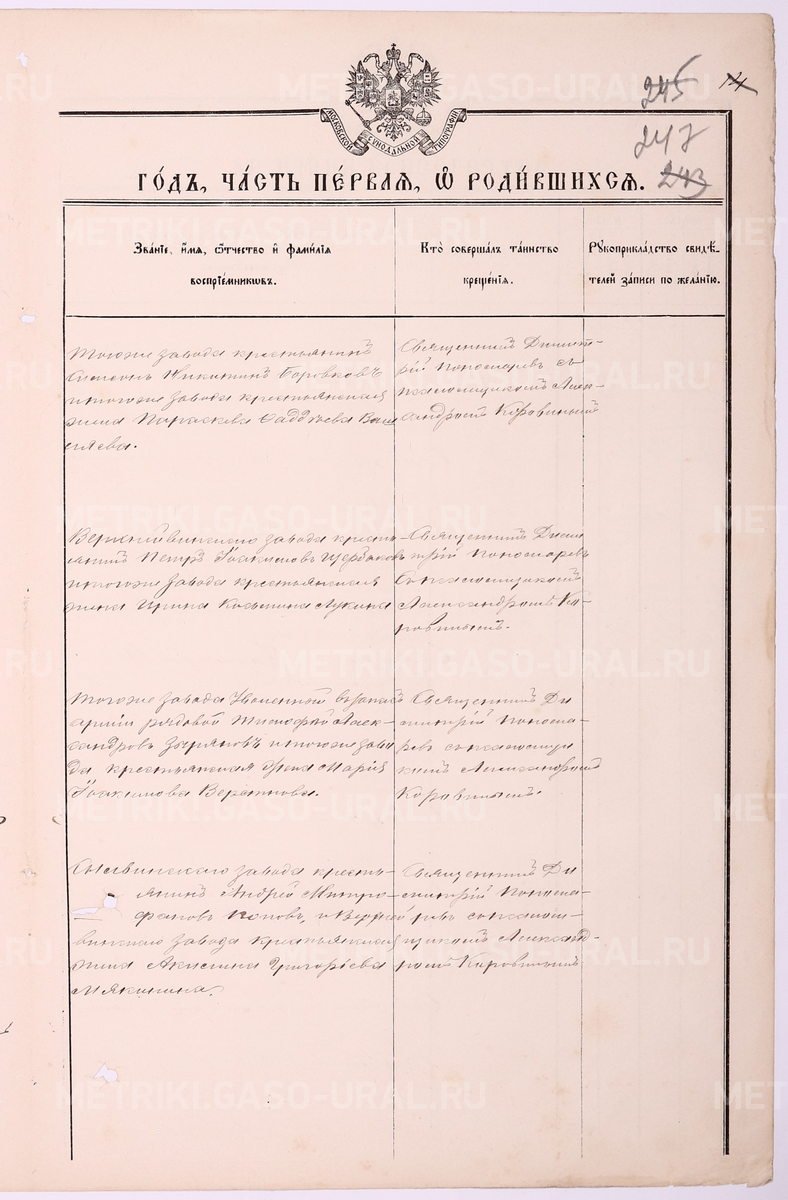 245 14
247
243
МОСКОВСКОЙ СѴНОДАЛЬНОЙ ТИПОГРАФІИ
ГО́ДЪ, ЧА́СТЬ ПЕ́РВАЯ, Ѽ РОДИ́ВШИХСЯ.
Зва́нїе, и҆́мѧ, ѻ҆́тчество и҆ фами́лїѧ
воспрїе́мникѡвъ.
Кто̀ соверша́лъ та́инство
креще́нїѧ.
Рꙋкоприкла́дство свидѣ́-
телей за́писи по жела́нїю.
Тогоже завода крестьянинъ
Симеонъ Никитинъ Боровковъ
и тогоже завода крестьянская
жена Параскева Фаддѣева Ваш
ляева.
Священникъ Димит-
рій Пономаревъ съ
псаломщикомъ Алек
сандромъ Коровинымъ
завода кресть
янинъ Петръ Іоакимовъ Щербаковъ
и тогоже завода крестьянская
жена Ирина Козьмина Лукина
Священникъ Дими
трій Пономаревъ
съ псаломщикомъ
Александромъ Ко-
ровинымъ.
Тогоже завода Уволенный въ запасъ
арміи рядовой Тимофей Алек-
сандровъ Зыряновъ и тогоже заво
да крестьянская жена Марія
Іоакимова
Священникъ Ди
митрій Понома-
ревъ съ псаломщи
комъ Александромъ
Коровинымъ.
завода кресть-
янинъ Андрей Митро
фановъ Поповъ, и Верхне
винскаго завода крестьянская
жена Акилина Григорьева
Мякинина.
Священникъ Ди
митрій Понома-
ревъ съ псалом-
щикомъ Александ-
ромъ Коровинымъ
METRIKI.GASO-URAL.RU